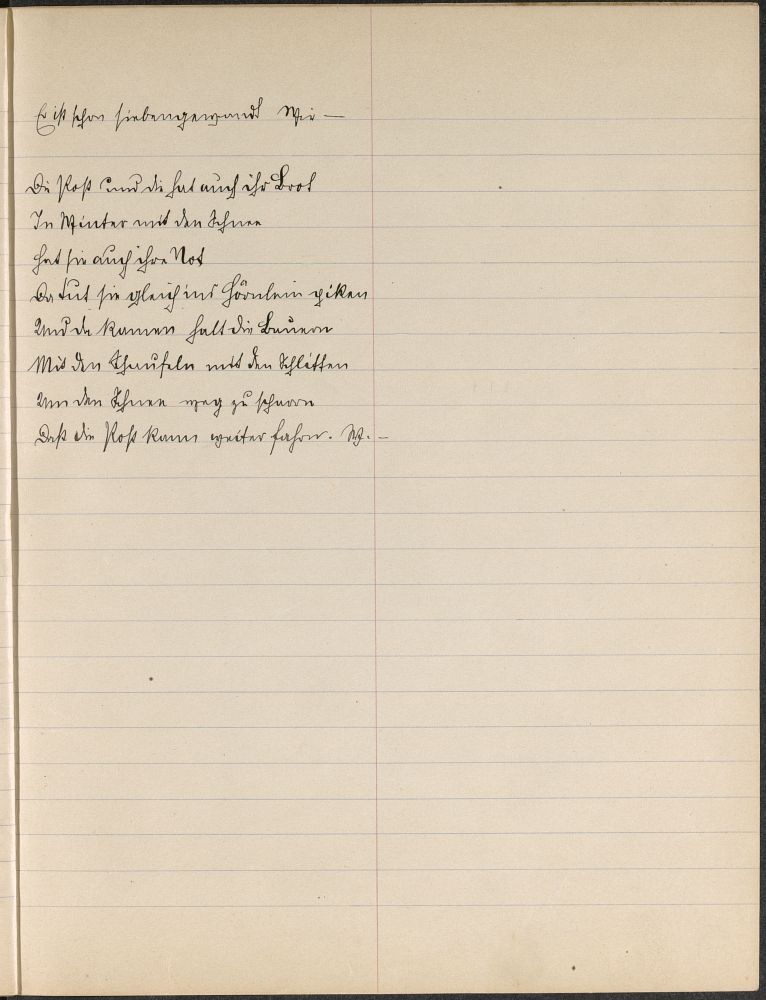 Er ist schon siebengewandt Wir —
Die Post und die hat auch ihr Brot
In Winter mit den Schnee
Hat sie auch ihre Not
Da tut sie gleich ins Hörnlein
Und da kamen halt die Bauern
Mit den Schaufeln mit den Schlitten
Um den Schnee weg zu scharrn
Daß die Post kann weiter fahrn. W. —